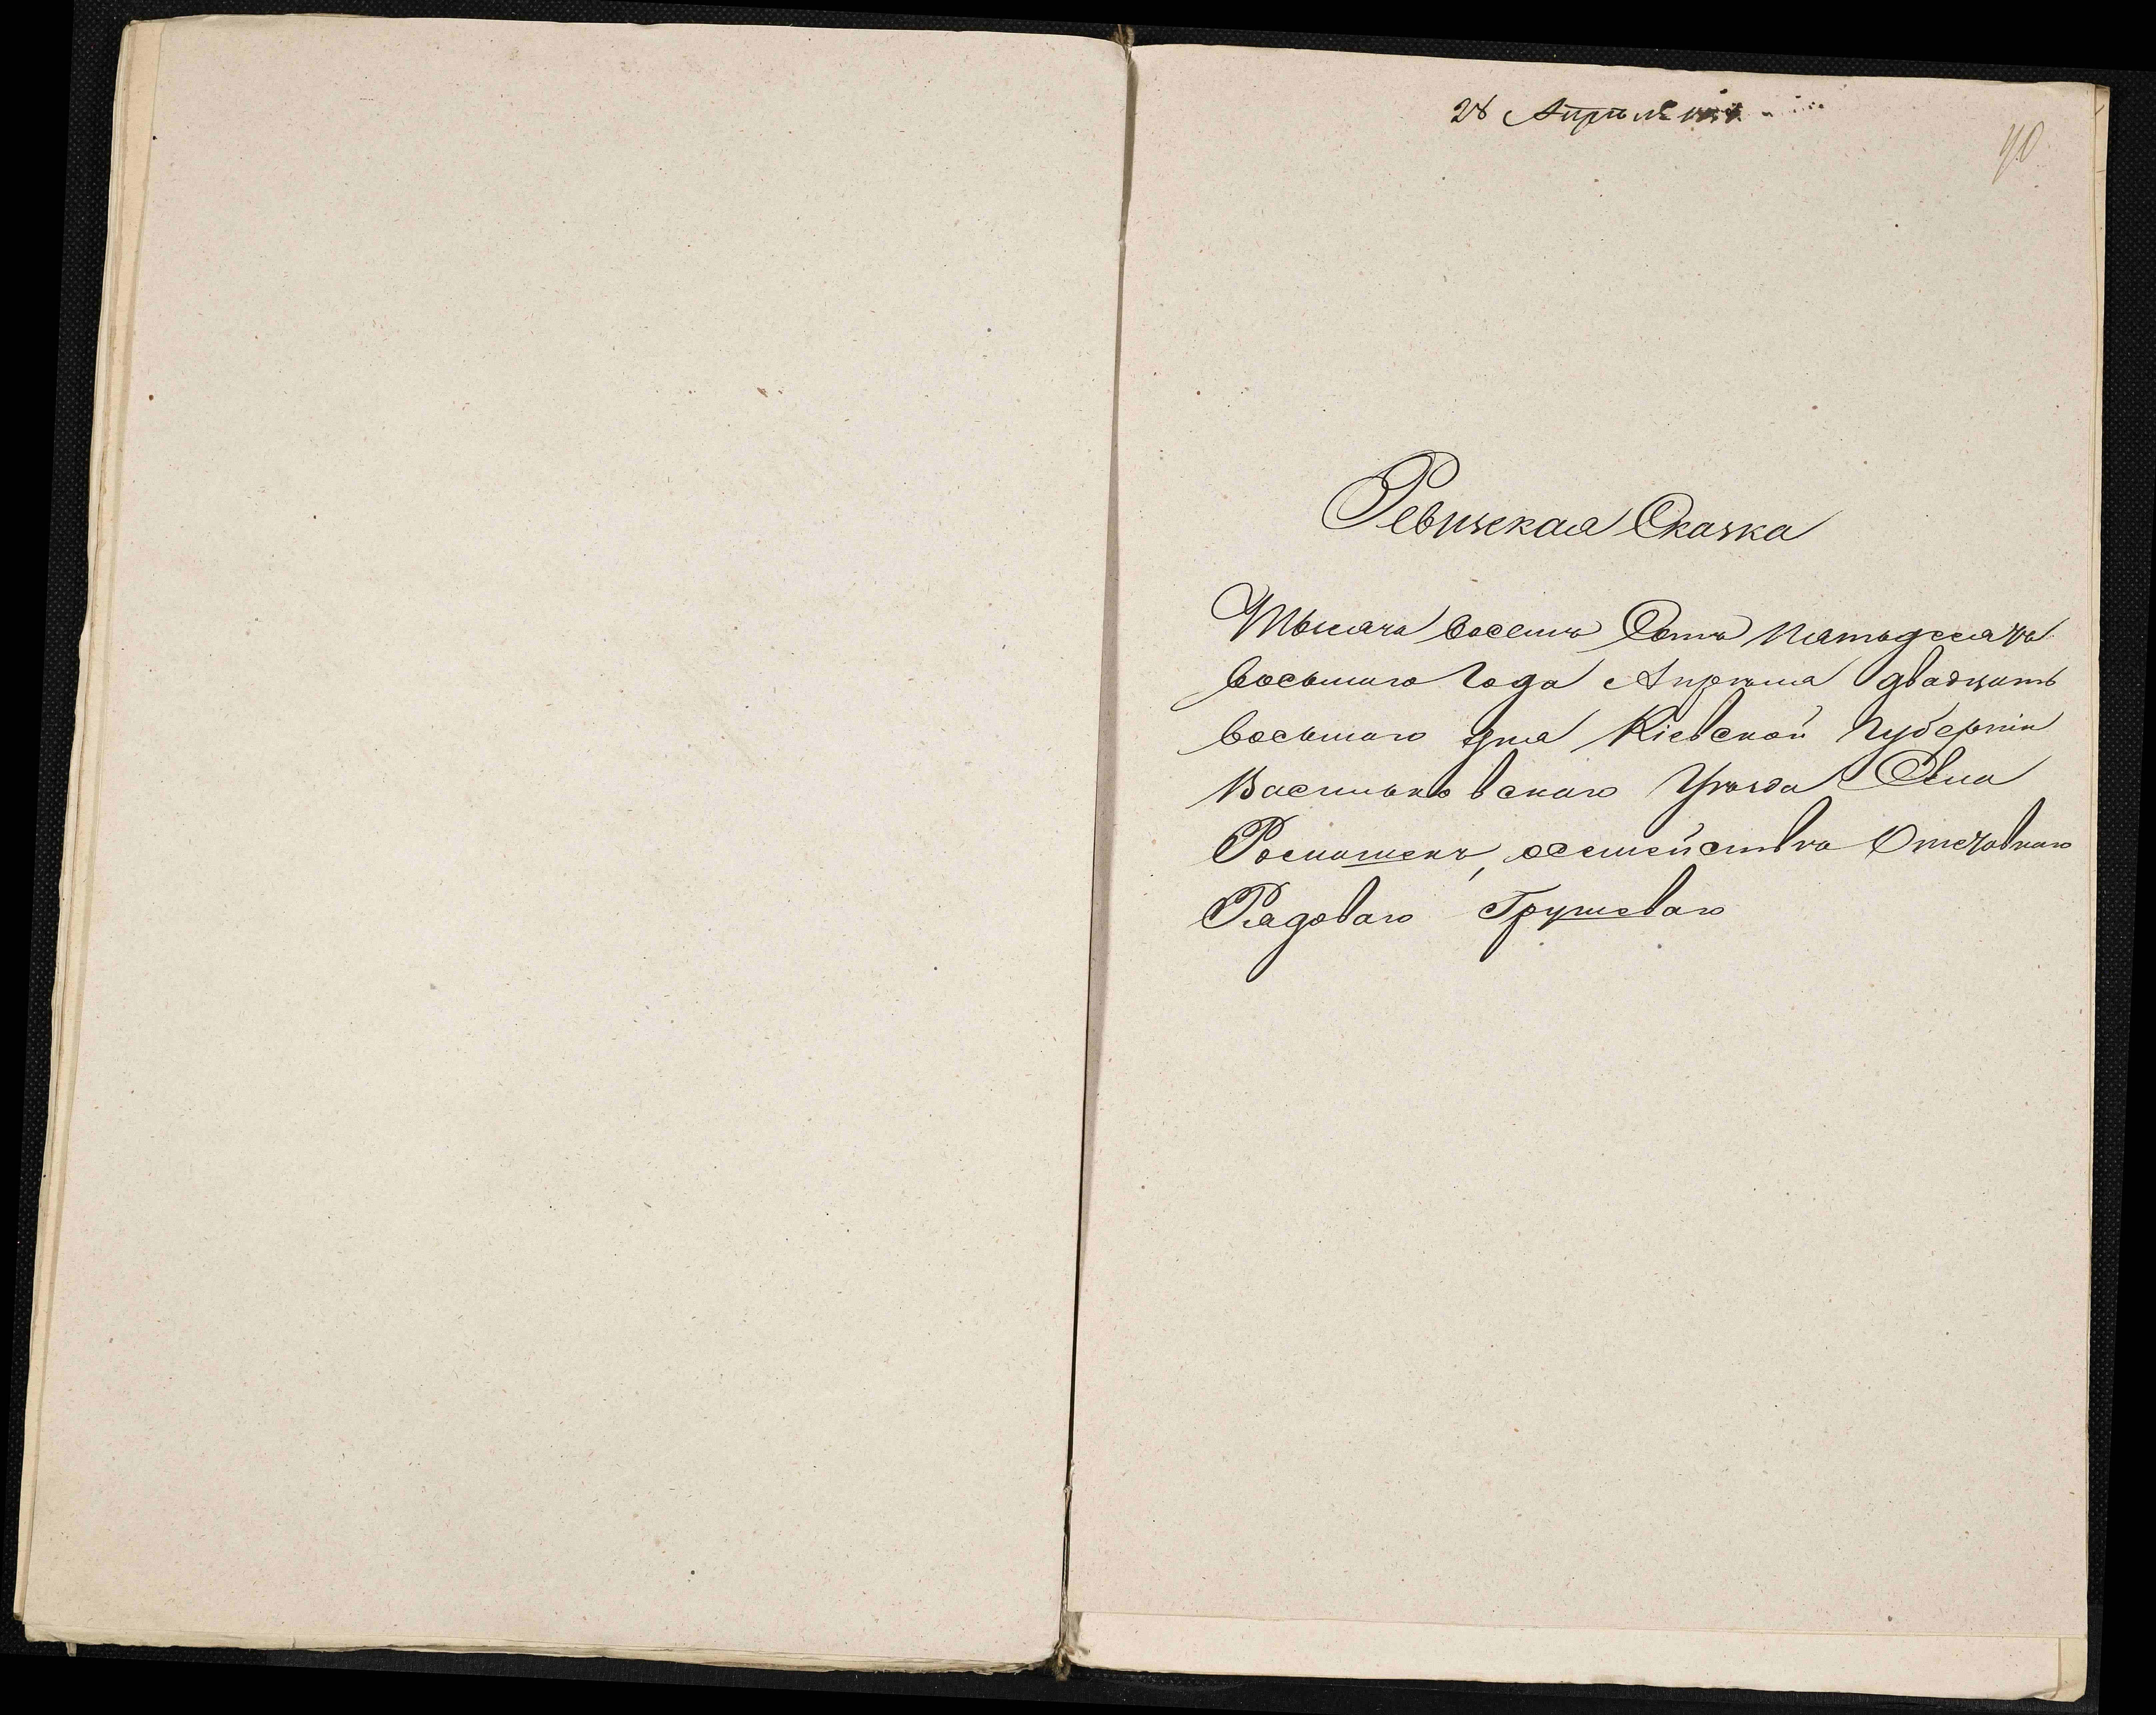 28 Апрѣля
40
Ревизская Сказка
Тысяча восемь Сотъ пятьдесятъ
восьмаго Года Апрѣля двадцать
восьмаго дня Кіевской Губерніи
Васильковскаго Уѣзда Села
Ромашекъ, семейства Отставнаго
Рядоваго Грушеваго